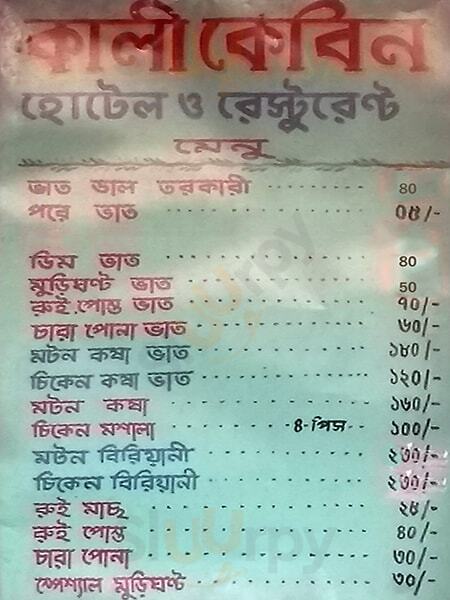 কালী কেবিন
হোটেল ও রেস্টুরেণ্ট
মেনু
ভাত ডাল তরকারী ......... 80
পরে ভাত ......... ০৫/-
ডিম ভাত ......... 80
মুড়িঘণ্ট ভাত ......... 50
রুই পোস্ত ভাত ......... ৭০/-
চারা পোনা ভাত ......... ৬০/-
মটন কষা ভাত ......... ১৮০/-
চিকেন কষা ভাত ......... ১২০/-
মটন কষা ......... ১৬০/-
চিকেন মশালা ......... ৪-পিস ... ১০০/-
মটন বিরিয়ানী .........
চিকেন বিরিয়ানী .........
রুই মাছ ......... ২৫/-
রুই পোস্ত ......... ৪০/-
চারা পোনা ......... ৩০/-
স্পেশ্যাল মুড়িঘণ্ট ......... ৩০/-
sluurpy